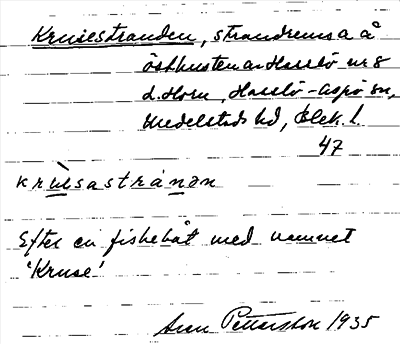 Krusestranden, strandremsa å
östkusten av Hasslö nr 8
d. Horn, Hasslö-Aspö sn,
Medelstads hd, Blek. l.
47
krùsastránən
Efter en fiskebåt med namnet
'Kruse'
Pettersson 1935